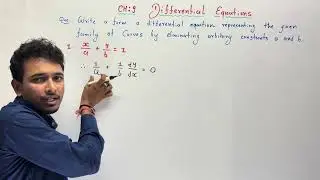 CH:9 Differential Equations
Que. Write a form a differential equation representing the given
family of Curves by eliminating arbitrary constants a and b.
1 x/a + y/b = 1
∴ 1/a + 1/b dy/dx = 0